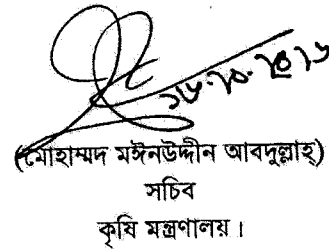 ১৮.১০.২০১৬
(মোহাম্মদ মঈনউদ্দীন আবদুল্লাহ্)
সচিব
কৃষি মন্ত্রণালয়।